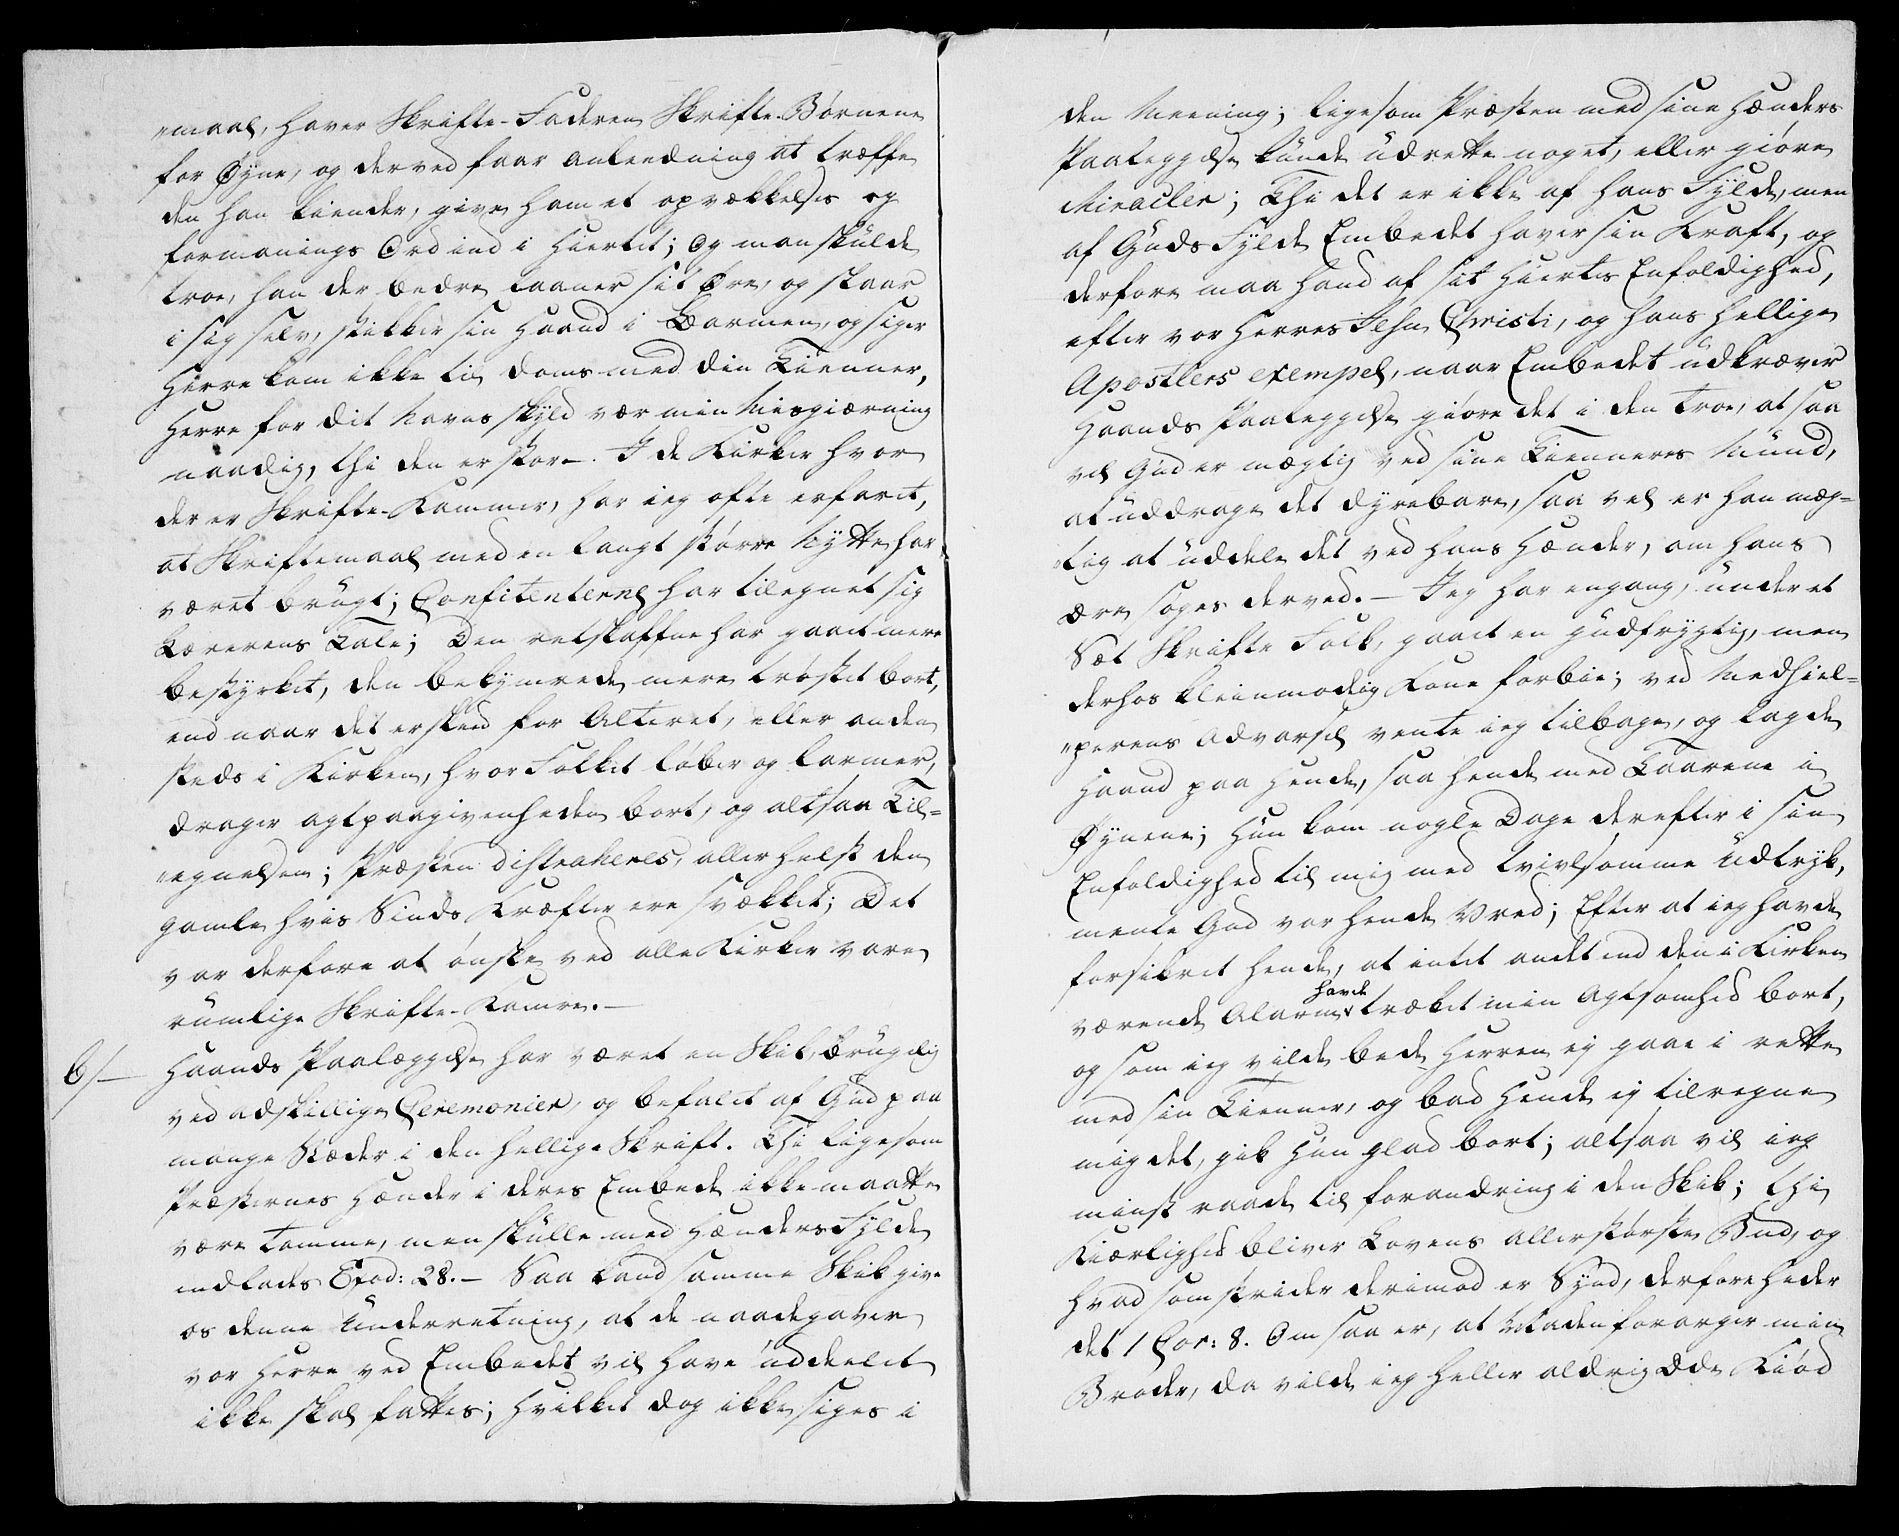 „maal, haver Skrifte-Faderen Skrifte-Børnene
for Øyne, og derved faar anleedning at træffe
den han kiender, give ham et opvækkelses og
formanings Ord ind i Hiertet; Og man skulde
troe, han der bedre laaner sit Øre, og slaar
i sig selv, stikker sin Haand i Barmen, og siger
Herre kom ikke til doms med din Tienner,
Herre for dit Navns skyld vær min Misgierning
naadig, thi den er stor. I de Kirker hvor
der er Skrifte-Kammer, har ieg ofte erfaret,
at Skriftemaal med en langt større Nytte har
været brugt; Confitenterne har tilegnet sig
Lærerens Tale; Den retskafne har gaaet mere
bestyrket, den bekymrede mere trøstet bort,
end naar det er skeed for Alteret, eller anden
steds i Kirken, hvor Folket løber og larmer,
drager agtpaagivenheden bort, og altsaa Til-
„egnelsen; Præsten distraheres, aller helst den
gamle hvis Sinds Kræfter ere svækket; Det
var derfore at ønske ved alle Kirker vare
rumlige Skrifte-Kamre.—
6/— Haands Paalæggelse har været en Skik, brugelig
ved adskillige Ceremonier, og befalet af Gud paa
mange Stæder i den hellige Skrift. Thi ligesom
Præsternes Hænder i deres Embede ikke maatte
være tomme, men skulle med Hænders Fylde
indlades Exod: 28.— Saa kand samme Skik give
os denne Underretning, at de naadegaver
vor Herre ved Embedet vil have uddeelet
ikke skal fattes; hvilket dog ikke siges i
den Meening; ligesom Præsten med sine Hænders
Paaleggelse kunde udrette noget, eller giøre
Miracler; Thi det er ikke af hans Fylde, men
af Guds Fylde Embedet haver sin Kraft, og
derfore maa hand af sit Hiertes Enfoldighed,
efter vor Herres Jesu Christi, og hans hellige
Apostlers exempel, naar Embedet udkræver
Haands Paaleggelse giøre det i den troe, at saa
vel Gud er mægtig ved sine Tienneres Mund,
at uddrage det dyrebare, saa vel er han mæg-
„tig at uddele det ved hans Hænder, om hans
ære søges derved.— Jeg har engang, under et
Sæt Skrifte Folk, gaaet en gudfrygtig, men
derhos kleinmodig Kone forbie; ved Medhiel-
„perens Advarsel vente ieg tilbage, og lagde
Haand paa hende, saa hende med Taarene i
Øynene; hun kom nogle Dage derefter i sin
Enfoldighed til mig med tvivlsomme Udtryk,
mente Gud var hende vred; Efter at ieg havde
forsikret hende, at intet andet end den i Kirken
værende Alarm havde trækket min Agtsomhed bort,
og som ieg vilde bede Herren ej gaae i rette
med sin Tienner, og bad hende ej tilregne
mig det, gik hun glad bort; altsaa vil ieg
minst raade til forandring i den Skik; thi
Kiærlighed bliver Lovens allerstørste Bud, og
hvad som strider derimod er Synd, derfore heder
det 1 Cor: 8. Om saa er, at Maden forarger min
Broder, da vilde ieg heller aldrig æde Kiød